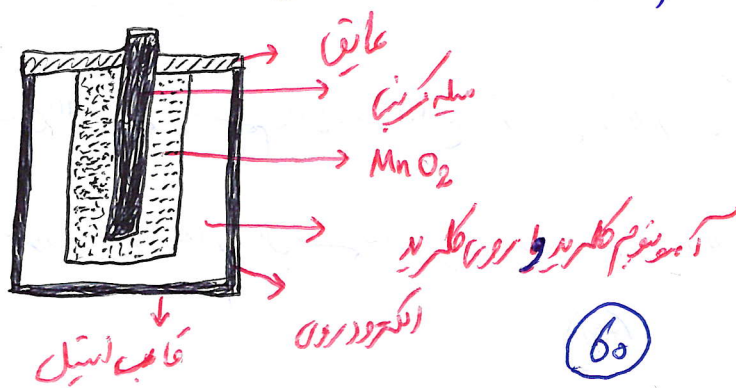 عایق
میله کربنی
MnO2
آمونیوم کلرید و روی کلرید
الکترود روی
قالب استیل
60